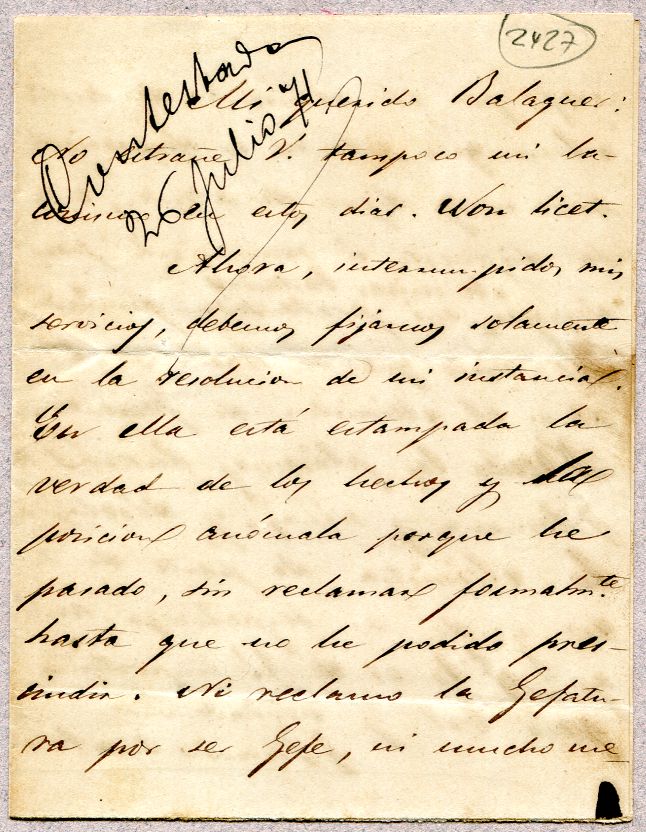 2427
Contestada
26 Julio 71
Mi querido Balaguer:
No estrañe V. tampoco mi la-
conismo en estos dias. Non licet.
Ahora, interrumpidos mis
servicios, debemos fijarnos solamente
en la resolucion de mi instancia.
En ella está estampada la
verdad de los hechos y la
posicion anómala porque he
pasado, sin reclamar formalmte.
hasta que no he podido pres-
cindir. Ni reclamo la Gefatu-
ra por ser Gefe, ni mucho me-